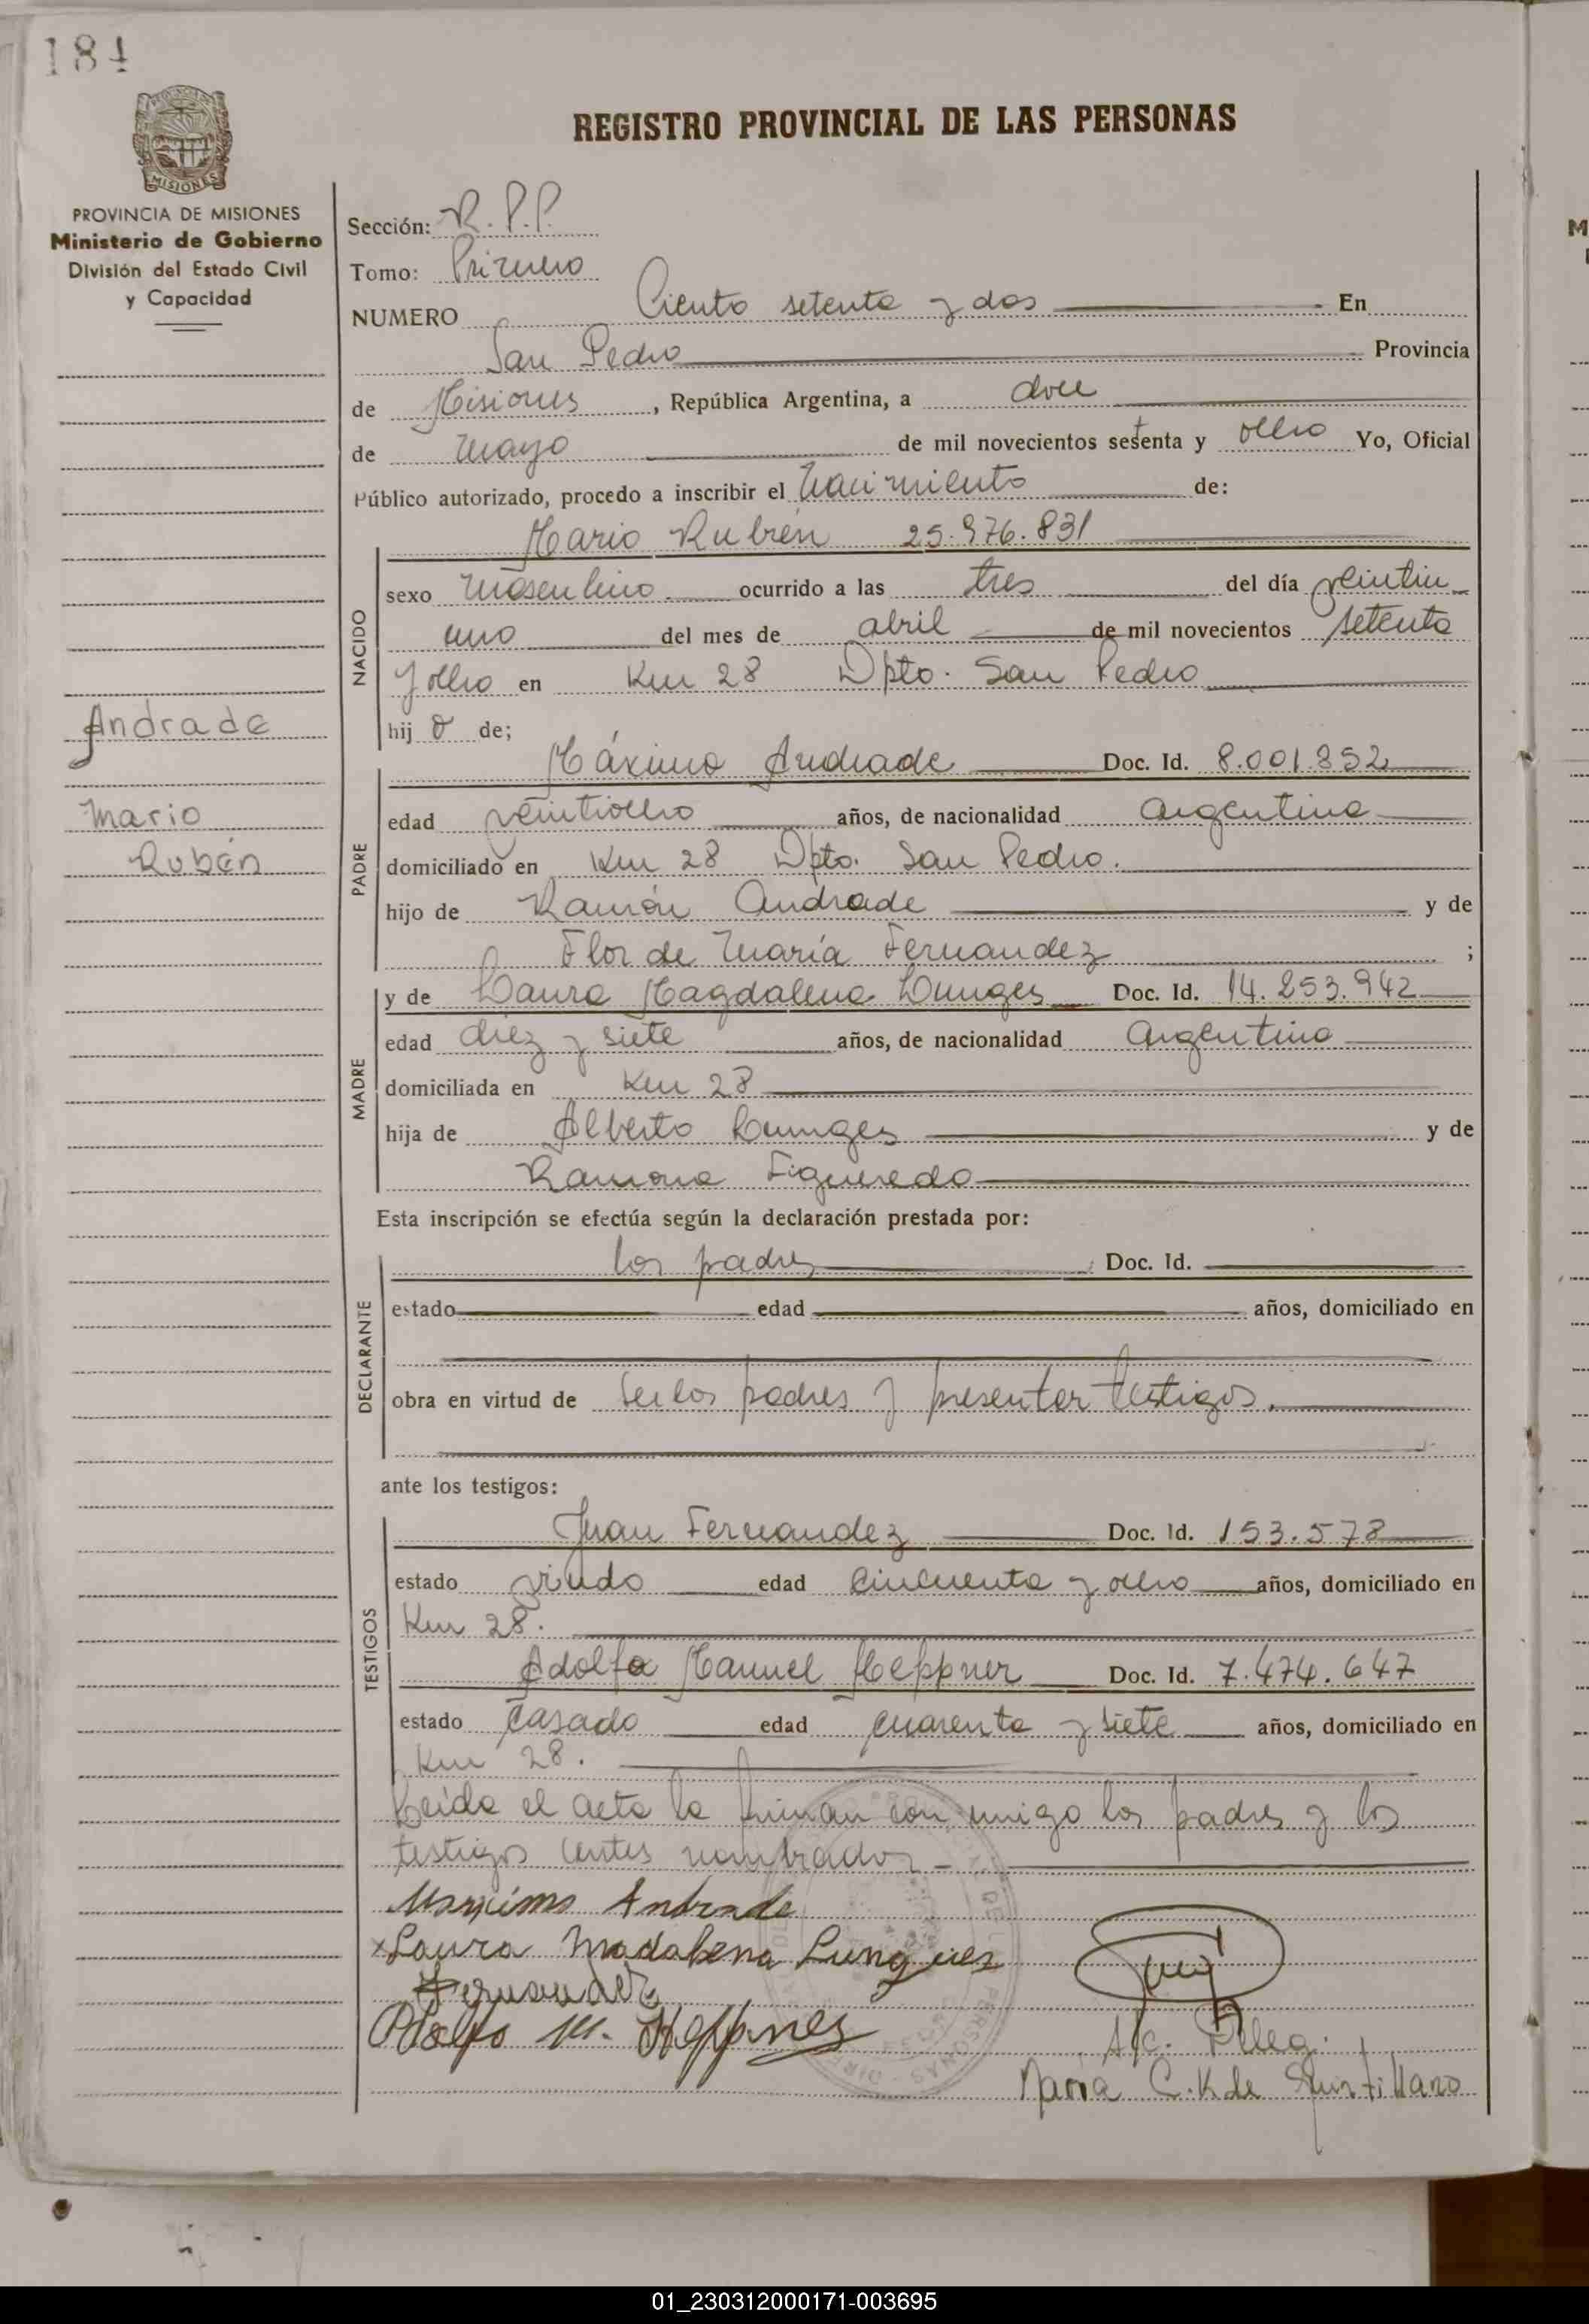 184
MISIONES
PROVINCIA DE MISIONES
Ministerio de Gobierno
División del Estado Civil
y Capacidad
Andrade
Mario
Rubén
REGISTRO PROVINCIAL DE LAS PERSONAS
Sección: R.P.P.
Tomo: Primero
NUMERO Ciento setenta y dos En
San Pedro Provincia
de Misiones, República Argentina, a doce
de Mayo de mil novecientos setenta y ocho Yo, Oficial
Público autorizado, procedo a inscribir el Nacimiento de:
Mario Rubén 25.976.831
NACIDO
sexo Masculino ocurrido a las tres del día veintiu_
uno del mes de abril de mil novecientos setenta
y ocho en Km 28 Dpto. San Pedro
hij o de;
PADRE
Máximo Andrade Doc. Id. 8.001.852
edad veintiocho años, de nacionalidad Argentina
domiciliado en Km 28 Dpto. San Pedro.
hijo de Ramón Andrade y de
Flor de María Fernandez ;
MADRE
y de Laura Magdalena Lunges Doc. Id. 14.253.942
edad diez y siete años, de nacionalidad Argentina
domiciliada en Km 28
hija de Alberto Lunges y de
Ramona Figueredo
Esta inscripción se efectúa según la declaración prestada por:
DECLARANTE
los padres Doc. Id.
estado edad años, domiciliado en
obra en virtud de ser los padres y presentar testigos.
ante los testigos:
TESTIGOS
Juan Fernandez Doc. Id. 153.578
estado viudo edad cincuenta y ocho años, domiciliado en
Km 28.
Adolfo Manuel Heppner Doc. Id. 7.474.647
estado Casado edad cuarenta y siete años, domiciliado en
Km 28.
Leída el acta la firman con migo los padres y los
testigos antes nombrados_
Maximo Andrade
x Laura Madalena Lungues
Fernandez
Adolfo M. Heppner
A/c. Deleg.
María C. K de Quintillano
01_230312000171-003695